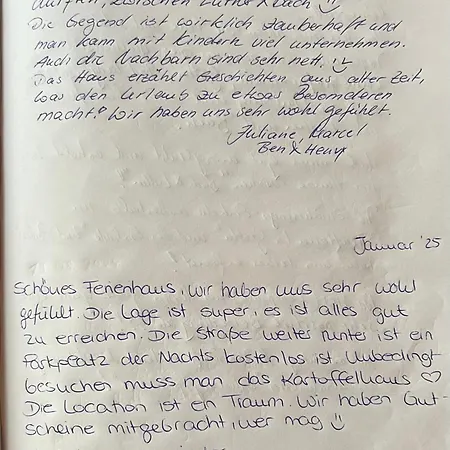 zwischen Luther & Bach
Die Gegend ist wirklich zauberhaft und
man kann mit Kindern viel unternehmen.
Auch die Nachbarn sind sehr nett.
Das Haus erzählt Geschichten aus alter Zeit,
was den Urlaub zu etwas Besonderen
macht. Wir haben uns sehr wohl gefühlt.
Juliane, Marcel
Ben & Henry
Januar '25
Schönes Ferienhaus, wir haben uns sehr wohl
gefühlt. Die Lage ist super, es ist alles gut
zu erreichen. Die Straße weiter runter ist ein
Parkplatz der Nachts kostenlos ist. Unbedingt
besuchen muss man das Kartoffelhaus ♡
Die Location ist ein Traum. Wir haben Gut-
scheine mitgebracht, wer mag